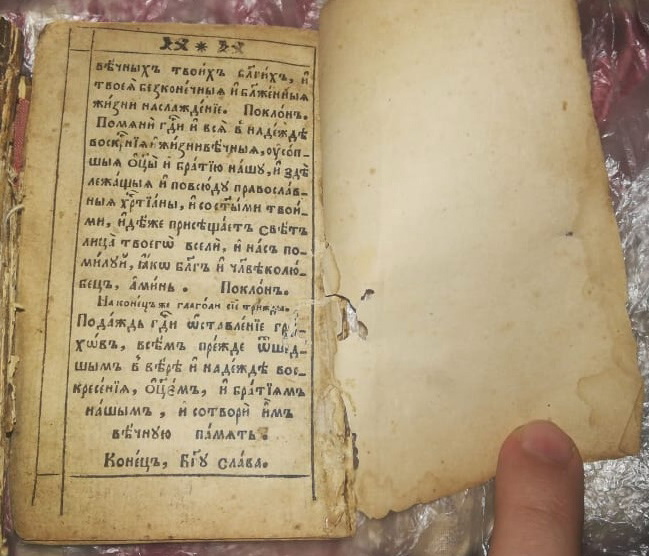 вѣ́чныхъ твои́хъ бл҃ги́хъ, и҆
твоеѧ̀ безконе́чныѧ и҆ бл҃же́нныѧ
жи́зни наслажде́нїе. Покло́нъ.
Помѧнѝ гдⷭ҇и и҆ всѧ̀ в̾ наде́ждѣ
воскрⷭ҇нїѧ и҆ жи́зни вѣ́чныѧ, ᲂу҆со́п-
шыѧ ѻ҆ц҃ы̀ и҆ бра́тїю на́шу, и҆ здѣ̀
лежа́щыѧ и҆ повсю́ду правосла́в-
ныѧ хрⷭ҇тїа́ны, и҆ со ст҃ы́ми твои́-
ми, и҆дѣ́же присѣща́етъ свѣ́тъ
лица̀ твоегѡ̀ вселѝ, и҆ на́съ по-
ми́луй, ꙗ҆́кѡ бл҃гъ и҆ чл҃вѣколю́-
бецъ, а҆ми́нь. Покло́нъ.
На коне́цъ же глаго́ли сїѐ три́жды.
Пода́ждь гдⷭ҇и ѡ҆ставле́нїе грѣ-
хѡ́въ, всѣ́мъ пре́жде ѿше́д-
шымъ в̾ вѣ́рѣ и҆ наде́ждѣ вос-
кресе́нїѧ, ѻ҆ц҃є́мъ, и҆ бра́тїѧмъ
на́шымъ, и҆ сотворѝ и҆̀мъ
вѣ́чную па́мѧть.
Коне́цъ, бг҃у сла́ва.